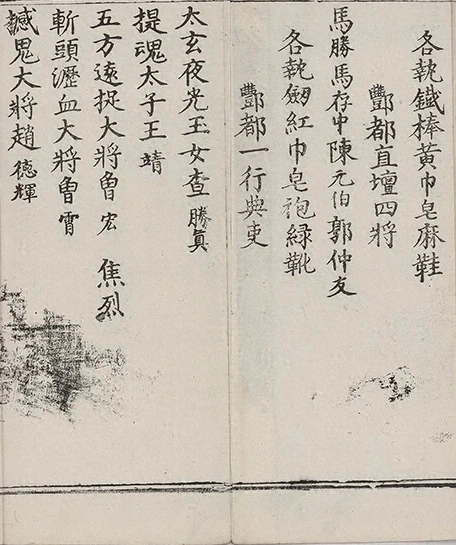 各執鐵棒黃巾皂麻鞋
酆都直壇四將
馬勝馬存中陳元伯郭仲友
各執劒紅巾皂袍綠靴
酆都一行典吏
太玄夜光玉女查勝真
提魂太子王靖
五方遠捉大將魯宏 焦烈
斬頭瀝血大將魯霄
撼鬼大將趙德輝